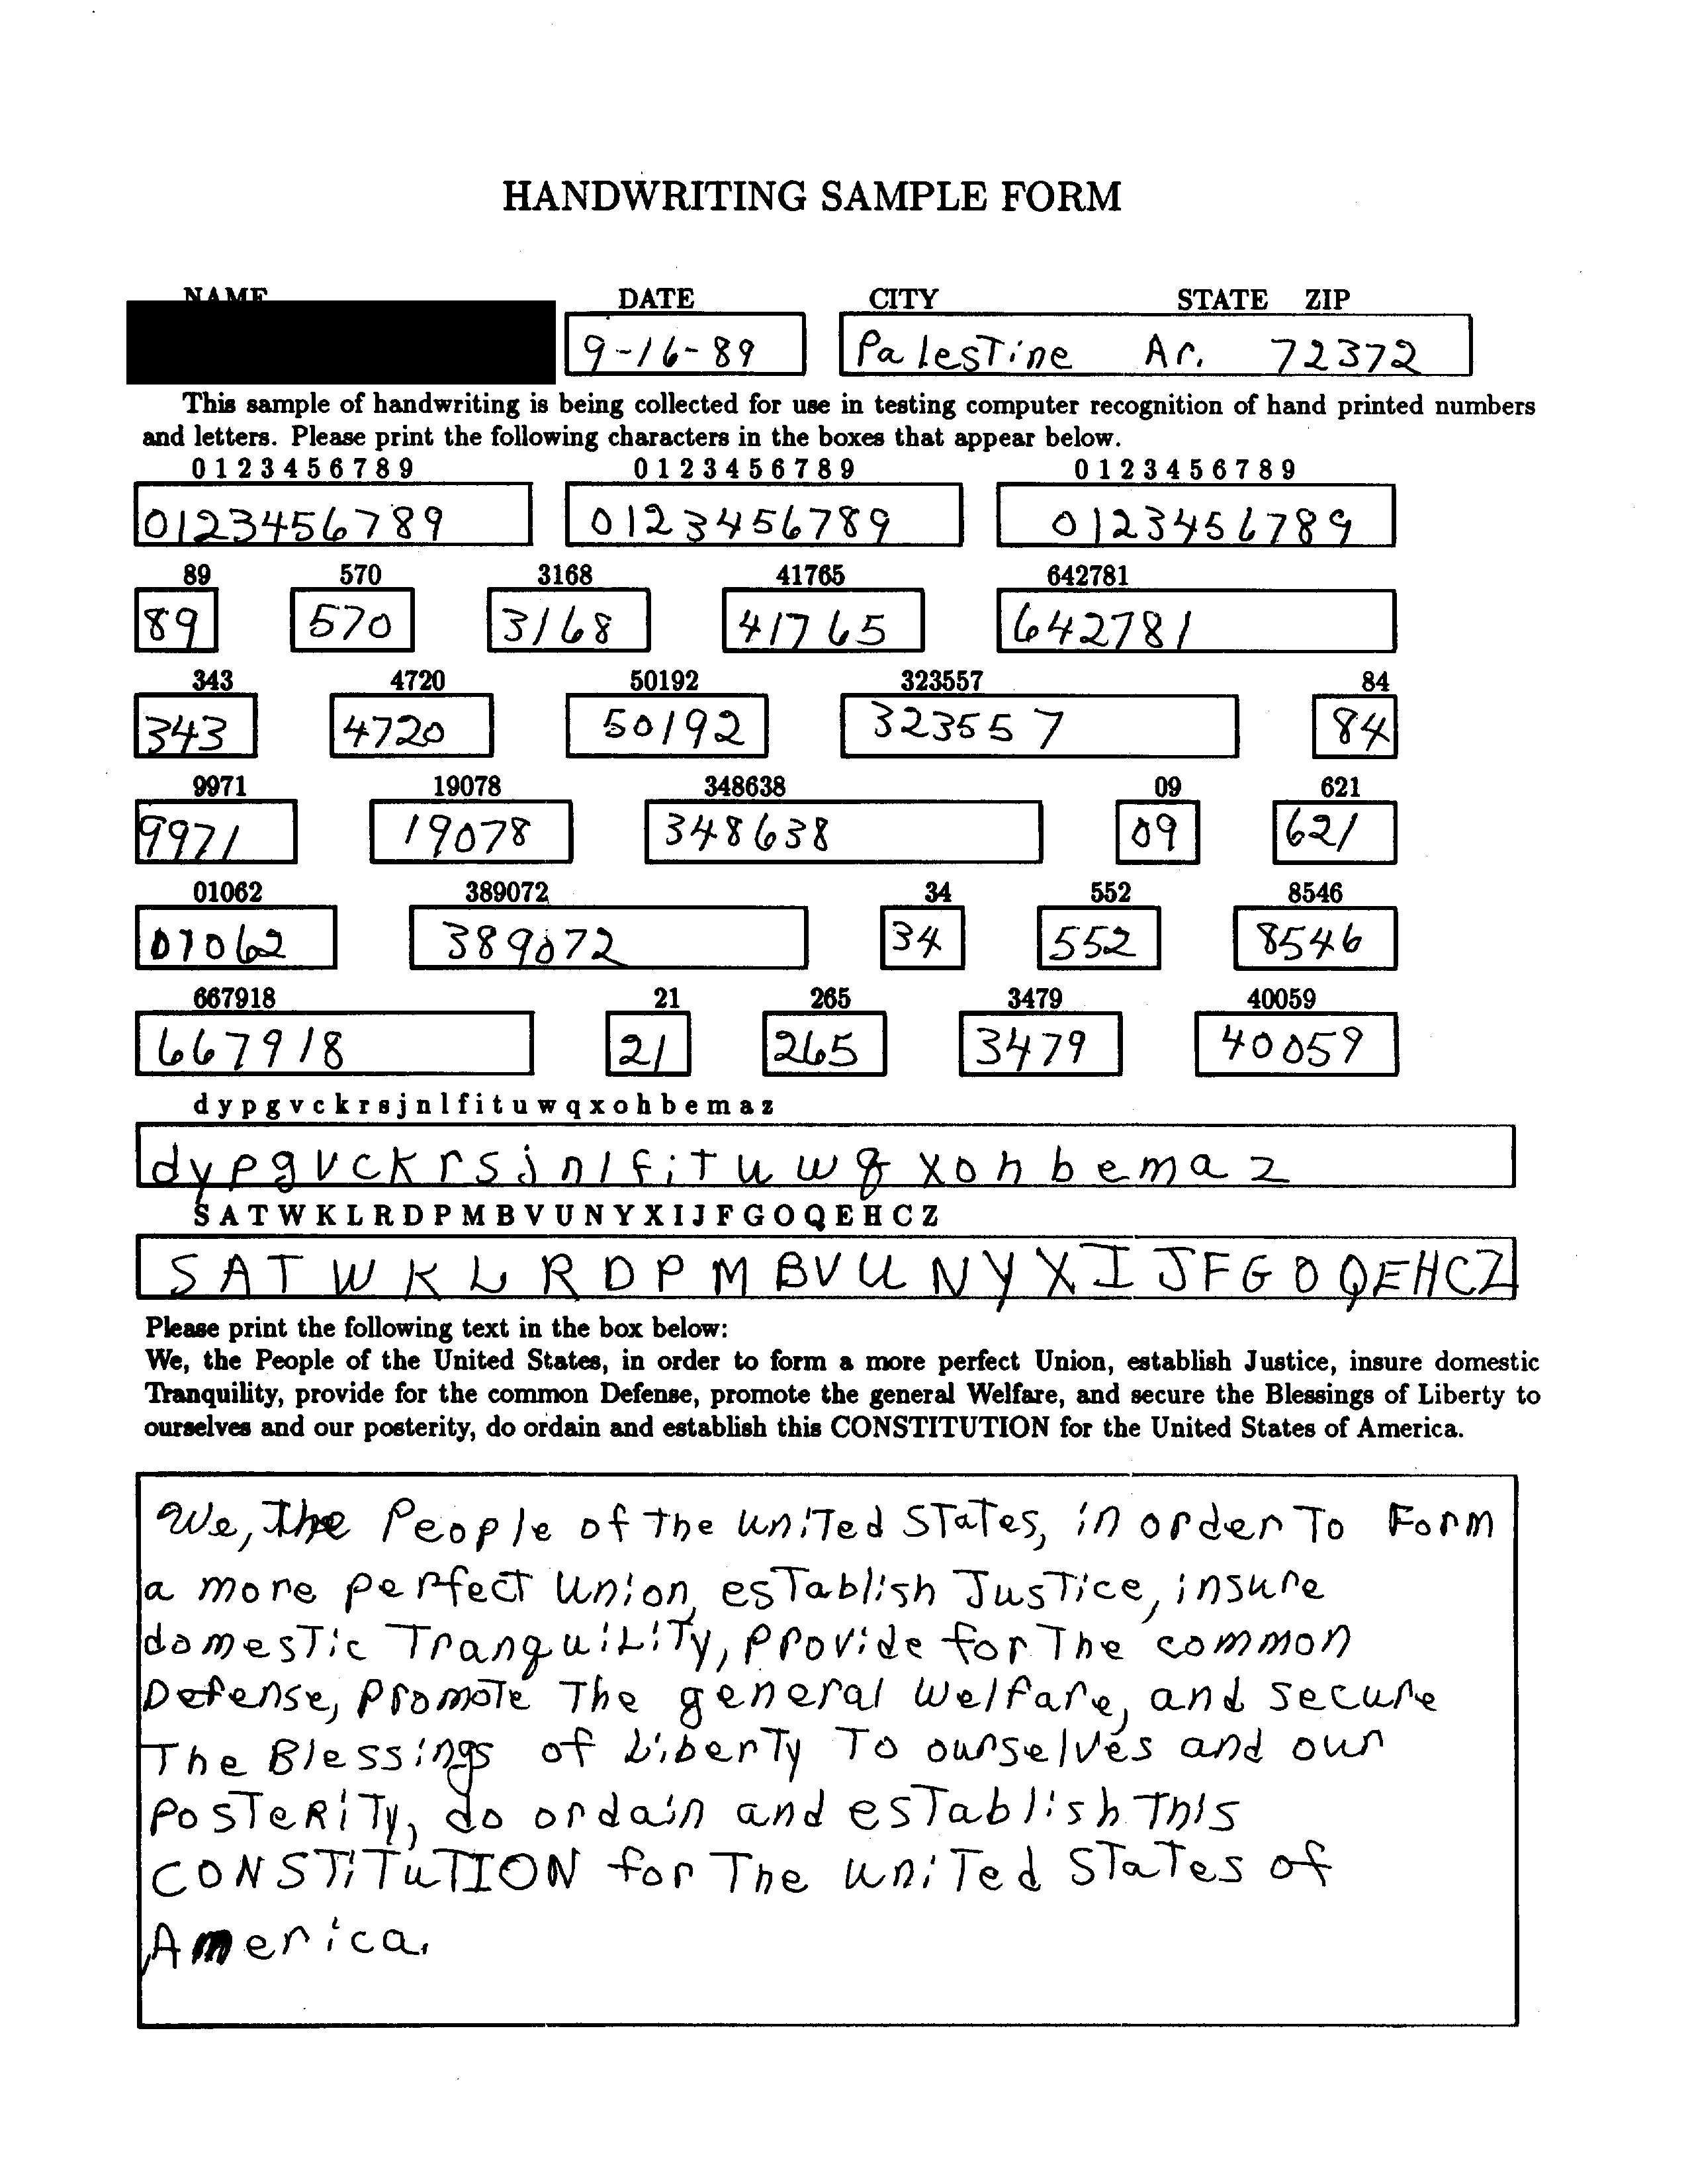 HANDWRITING SAMPLE FORM
NAME DATE CITY STATE ZIP
9-16-89 Palestine Ar. 72372
This sample of handwriting is being collected for use in testing computer recognition of hand printed numbers
and letters. Please print the following characters in the boxes that appear below.
0 1 2 3 4 5 6 7 8 9 0 1 2 3 4 5 6 7 8 9 0 1 2 3 4 5 6 7 8 9
0123456789 0123456789 0123456789
89 570 3168 41765 642781
89 570 3168 41765 642781
343 4720 50192 323557 84
343 4720 50192 323557 84
9971 19078 348638 09 621
9971 19078 348638 09 621
01062 389072 34 552 8546
01062 389072 34 552 8546
667918 21 265 3479 40059
667918 21 265 3479 40059
d y p g v c k r s j n l f i t u w q x o h b e m a z
d y p g v c k r s j n l f i t u w q x o h b e m a z
S A T W K L R D P M B V U N Y X I J F G O Q E H C Z
S A T W K L R D P M B V U N Y X I J F G O Q E H C Z
Please print the following text in the box below:
We, the People of the United States, in order to form a more perfect Union, establish Justice, insure domestic
Tranquility, provide for the common Defense, promote the general Welfare, and secure the Blessings of Liberty to
ourselves and our posterity, do ordain and establish this CONSTITUTION for the United States of America.
We, the People of the united States, in order To Form
a more perfect Union, establish Justice, insure
domestic Tranquility, provide for The common
Defense, promote The general Welfare, and secure
The Blessings of Liberty To ourselves and our
PosTeRiTy, do ordain and establish This
CONSTiTuTION for The united States of
America.